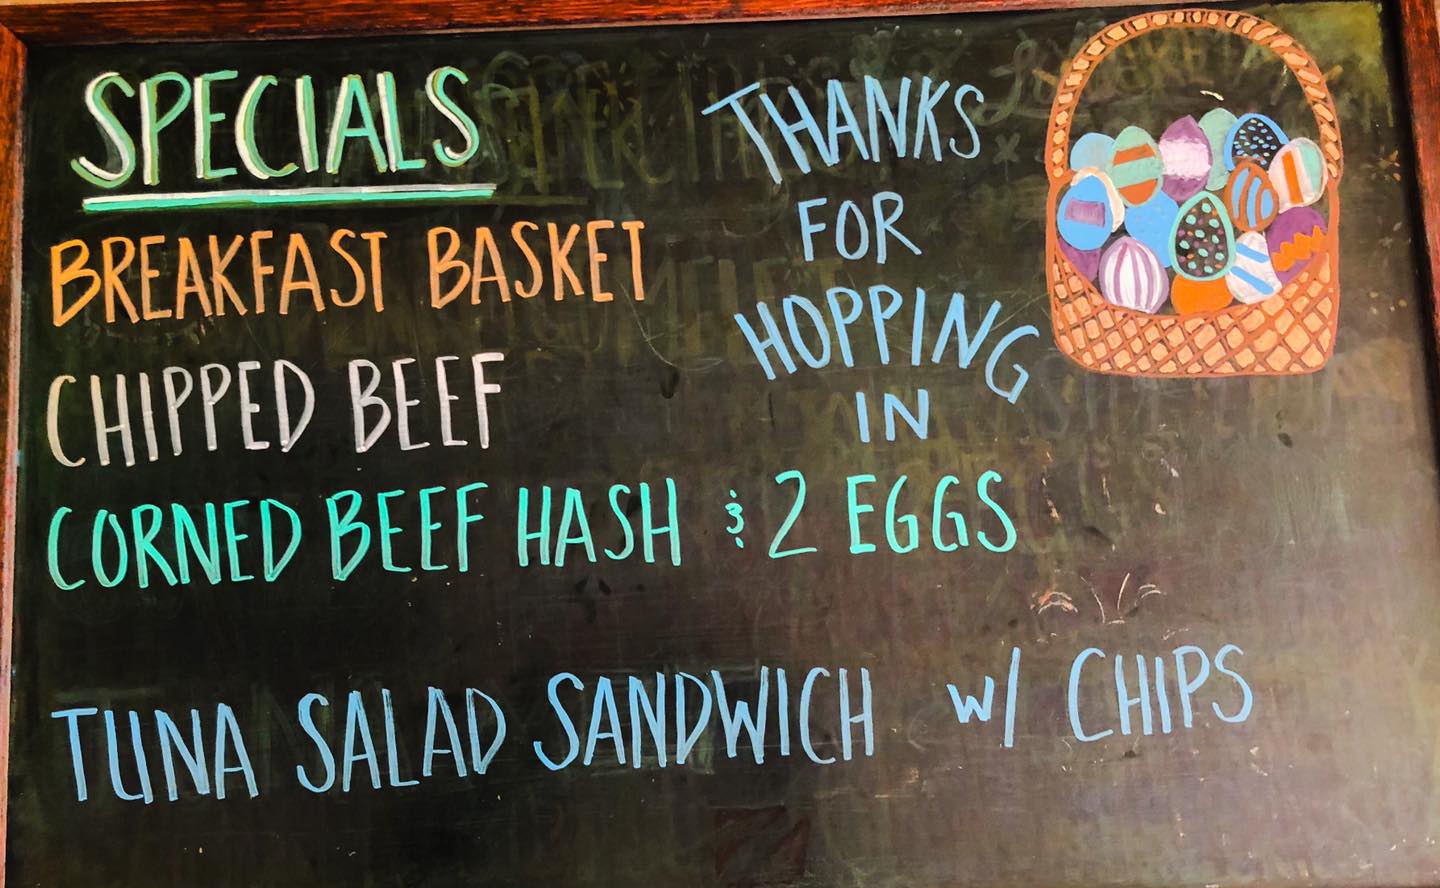 SPECIALS
BREAKFAST BASKET
CHIPPED BEEF
CORNED BEEF HASH & 2 EGGS
TUNA SALAD SANDWICH w/ CHIPS
THANKS
FOR
HOPPING
IN